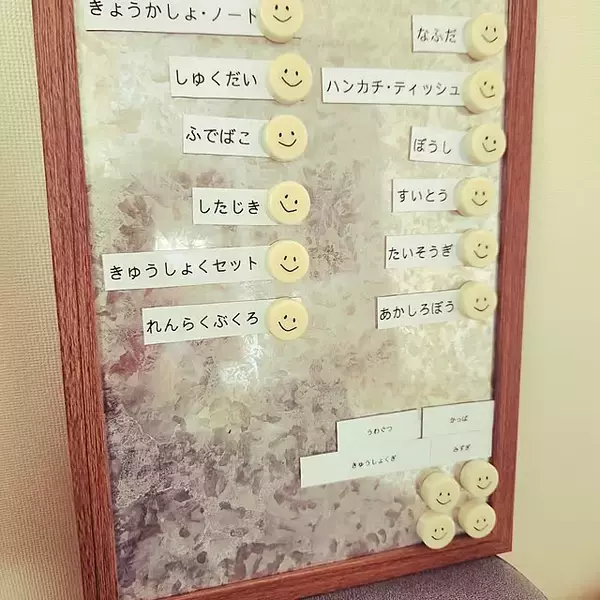 きょうかしょ・ノート
しゅくだい
ふでばこ
したじき
きゅうしょくセット
れんらくぶくろ
なふだ
ハンカチ・ティッシュ
ぼうし
すいとう
たいそうぎ
あかしろぼう
うわぐつ
かっぱ
きゅうしょくぎ
みずぎ